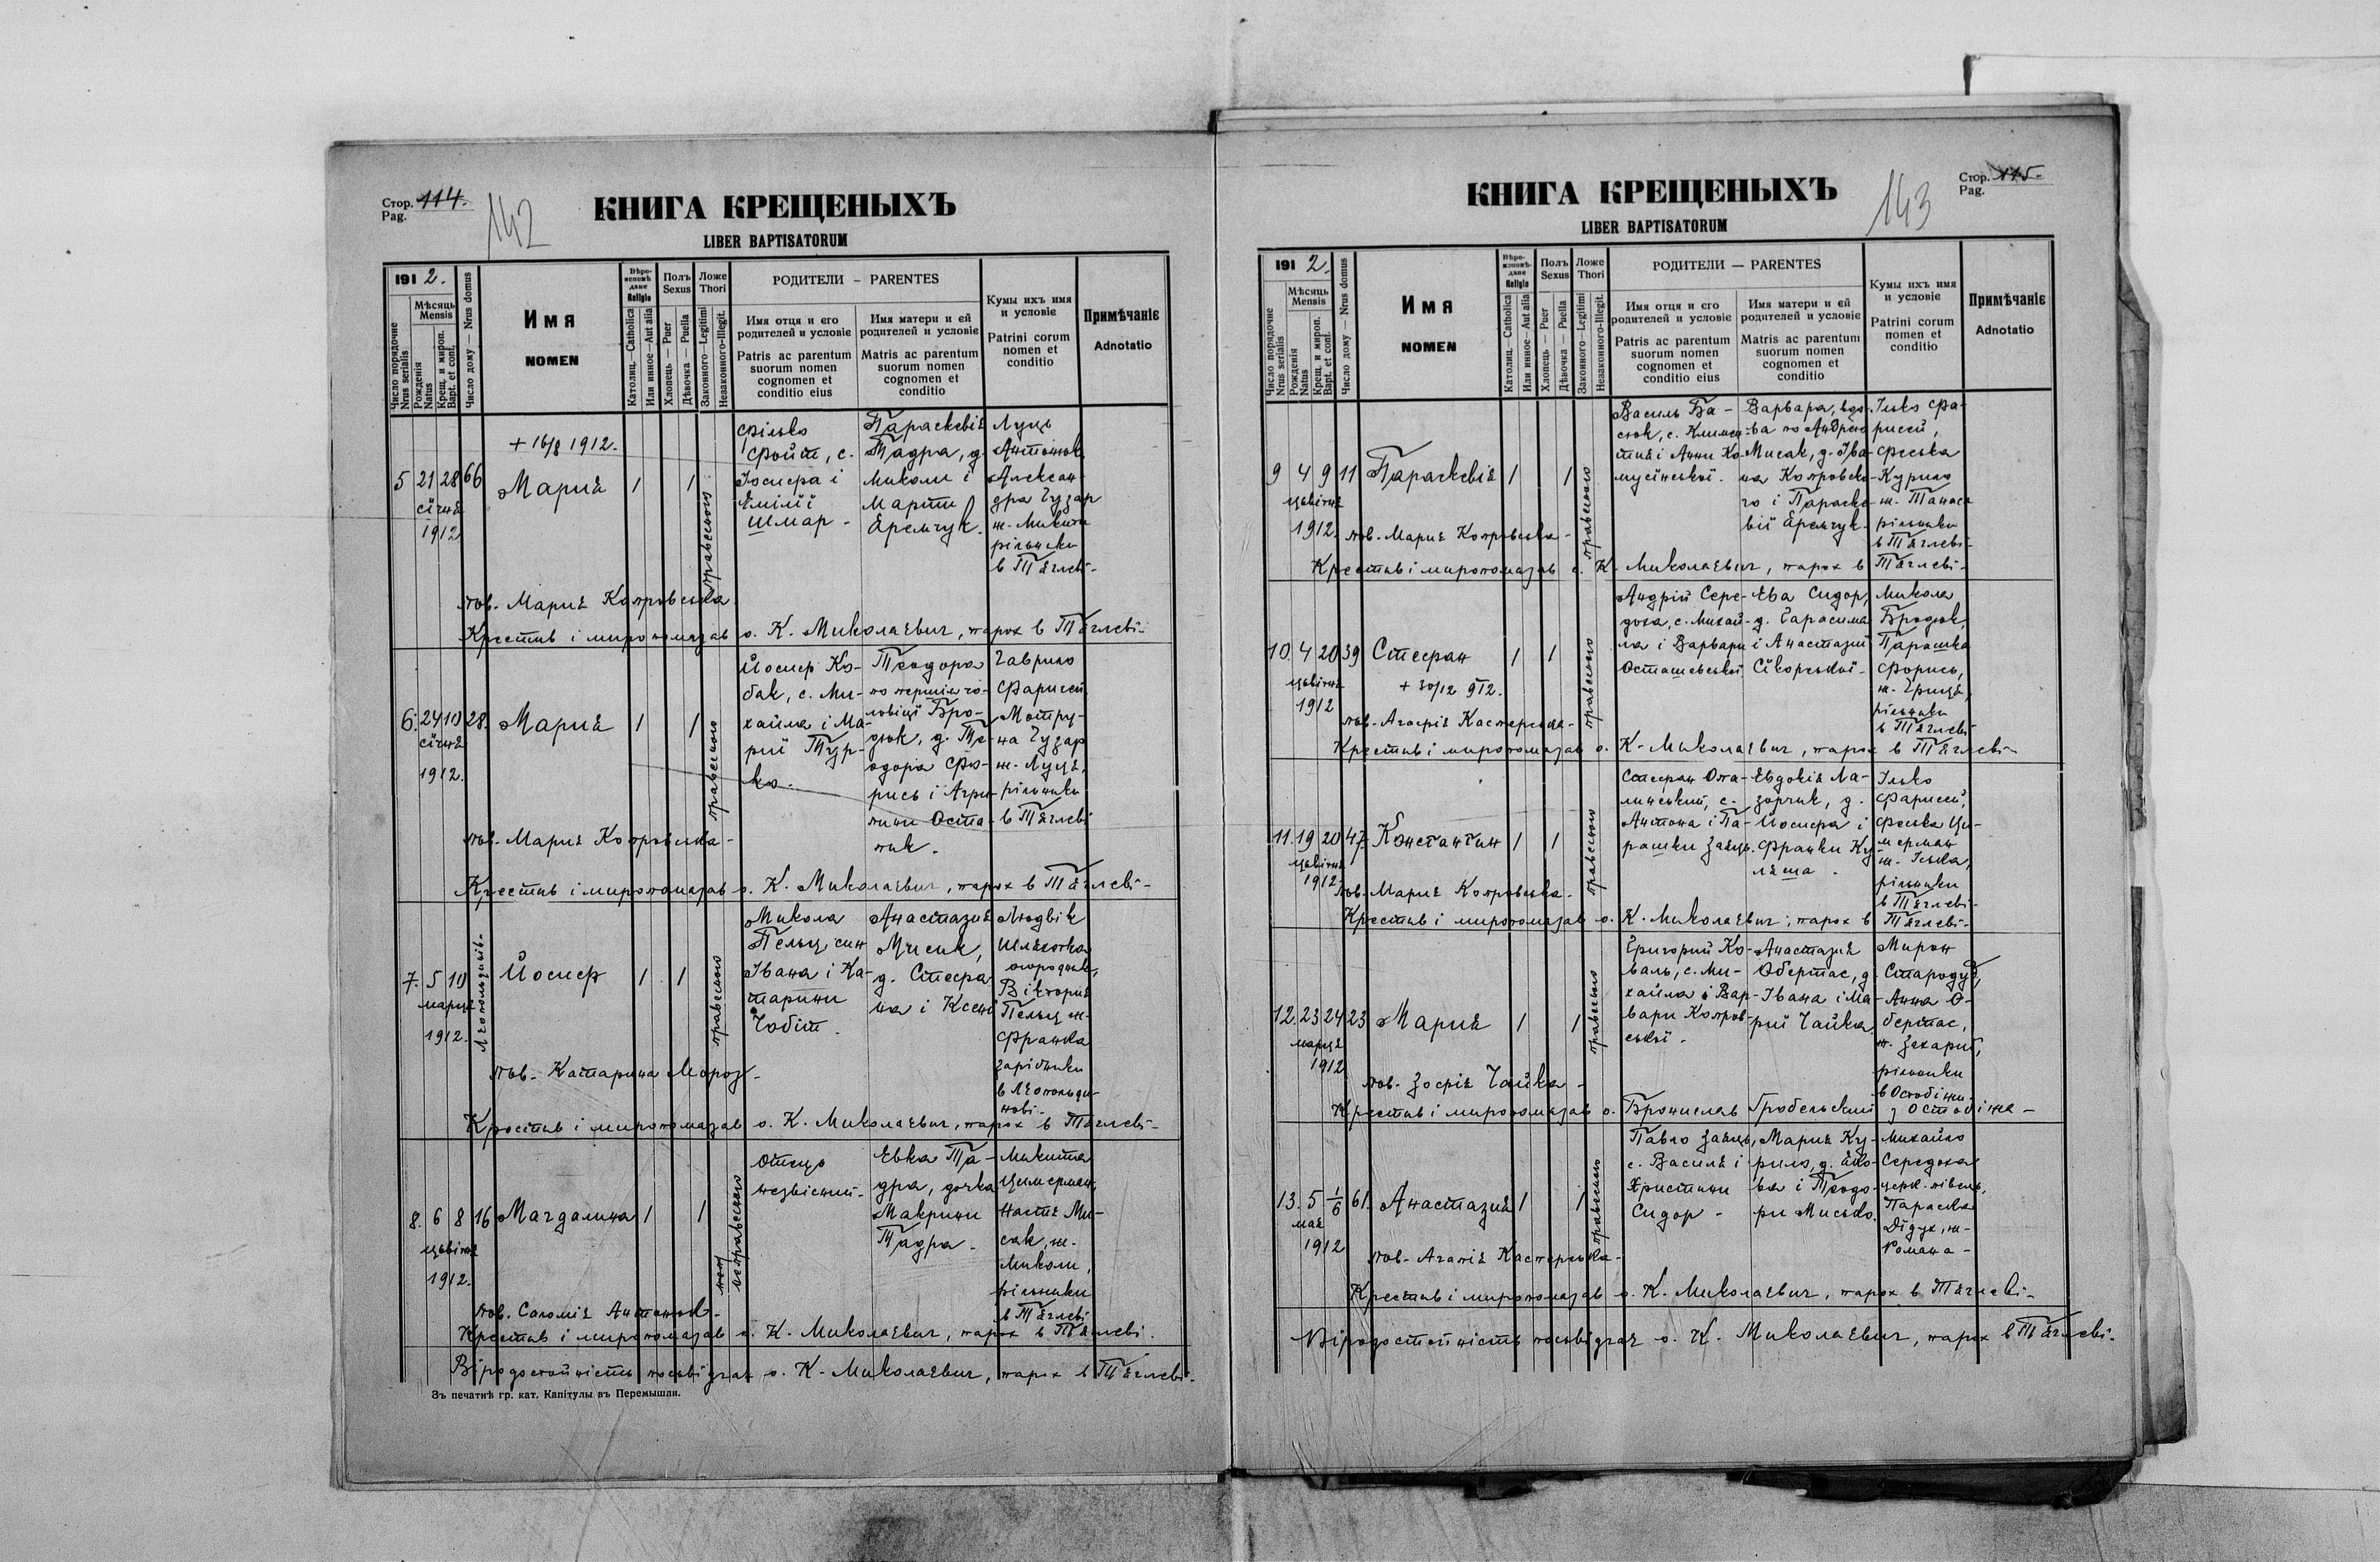 Стор. 114.
Pag.
142
КНИГА КРЕЩЕНЫХЪ
LIBER BAPTISATORUM
191 2.
Число порядочне
Nrus serialis
Мѣсяць
Mensis
Рожденія
Natus
Крещ. и мироп.
Bapt. et conf.
Число дому — Nrus domus
Имя
NOMEN
Вѣро-
исповѣ-
дане
Religio
Католиц.—Catholica
Или инное—Aut alia
Полъ
Sexus
Хлопець — Puer
Дѣвочка — Puella
Ложе
Thori
Законного—Legitimi
Незаконного-Illegit.
РОДИТЕЛИ – PARENTES
Имя отця и его
родителей и условіе
Patris ac parentum
suorum nomen
cognomen et
conditio eius
Имя матери и ей
родителей и условіе
Matris ac parentum
suorum nomen
cognomen et
conditio
Кумы ихъ имя
и условіе
Patrini corum
nomen et
conditio
Примѣчаніє
Adnotatio
5 21 28 66
січня
1912
+ 16/8 1912.
Мария 1 1
правесного
Філько
Фойт, с.
Йосифа і
Емілії
Шмар -
Параскевія
Тадра, д.
Миколи і
Марти
Еремчук.
Луць
Антонюк,
Алексан-
дра Гузар
ж. Микити
рільники
в Тяглеві-
пов. Мария Копровська
Крестив і миропомазав о. К. Миколаєвич, парох в Тяглеві-
6. 24 10 28.
січня
1912.
Мария 1 1
правесного
Йосиф Ко-
бак, с. Ми-
хайла і Ма-
рії Тур-
ко.
Теодора
по першім чо-
ловіці Бро-
дюк, д. Те-
одора Фо-
рись і Агри-
пини Оста-
пик.
Гаврило
Фарисей,
Мотру-
на Гузар
ж. Луця,
рільники
в Тяглеві
пов. Мария Копровська -
Крестив і миропомазав о. К. Миколаєвич, парох в Тяглеві -
7. 5 10
марця
1912.
Йосиф 1 1
правесного
Микола
Пельц син
Івана і Ка-
тарини
Чобіт.
Анастазия
Мисик,
д. Стефа-
на і Ксені
Людвік
Шляхотка
огородник,
Вікторія
Пельц ж.
Франка
зарібники
в Леопольди-
нові-
пов. Катарина Мороз -
Крестив і миропомазав о. К. Миколаєвич, парох в Тяглеві -
8. 6 8 16
цьвітня
1912.
Магдалина 1 1
неправесного
Отець
незвісний.
Евка Та-
дра, дочка
Маврини
Тадра -
Микита
Цимерман,
Настя Ми-
сак, ж.
Миколи,
рільники
в Тяглеві
пов. Саломія Антонюк -
Крестив і миропомазав о. К. Миколаєвич, парох в Тяглеві.
Віродостойність посвідчає о. К. Миколаєвич, парох в Тяглеві-
Зъ печатнѣ гр. кат. Капітулы въ Перемышли.
Стор. 115-
Pag.
143
КНИГА КРЕЩЕНЫХЪ
LIBER BAPTISATORUM
191 2.
Число порядочне
Nrus serialis
Мѣсяць
Mensis
Рожденія
Natus
Крещ. и мироп.
Bapt. et conf.
Число дому — Nrus domus
Имя
NOMEN
Вѣро-
исповѣ-
дане
Religio
Католиц.—Catholica
Или инное—Aut alia
Полъ
Sexus
Хлопець — Puer
Дѣвочка — Puella
Ложе
Thori
Законного—Legitimi
Незаконного-Illegit.
РОДИТЕЛИ — PARENTES
Имя отця и его
родителей и условіе
Patris ac parentum
suorum nomen
cognomen et
conditio eius
Имя матери и ей
родителей и условіе
Matris ac parentum
suorum nomen
cognomen et
conditio
Кумы ихъ имя
и условіе
Patrini corum
nomen et
conditio
Примѣчаніє
Adnotatio
9 4 9 11
цьвітня
1912.
Параскевія 1 1
правесного
Василь Ба-
сюк, с. Климен-
тия і Анни Ко-
Варвара, вдо-
ва по Андрею
Мисак, д. Іва-
на Копровско-
го і Параске-
вії Еремчук.
Ілько Фа-
рисей,
Феська
Курило
ж. Танаса
рільники
в Тяглеві-
пов. Мария Копровська -
Крестив і миропомазав о. К. Миколаєвич, парох в Тяглеві-
10. 4 20 39
цьвітня
1912
Стефан 1 1
+ 30/12 912.
правесного
Андрій Сере-
доха, с. Михай-
ла і Варвари
Осташевської
Ева Сидор,
д. Гарасима
і Анастазиї
Сікорської -
Микола
Бродюк,
Парашка
Форись,
ж. Гриця,
рільники
в Тяглеві
пов. Агафія Касперська -
Крестив і миропомазав о. К. Миколаєвич, парох в Тяглеві-
11. 19 20 47
цьвітня
1912
Константин 1 1
правесного
Стефан Опа-
линський, с.
Антона і Па-
рашки Заяць.
Евдокія Ла-
зорчик, д.
Йосифа і
Франки Ку-
ляша.
Ілько
Фарисей,
Феська Ци-
мерман
ж. Ілька,
рільники
в Тяглеві-
пов. Мария Копровська -
Крестив і миропомазав о. К. Миколаєвич, парох в Тяглеві-
12. 23 24 23
марця
1912
Мария 1 1
правесного
Григорий Ко-
валь, с. Ми-
хайла і Вар-
вари Копров-
ської -
Анастазия
Обертас, д.
Івана і Ма-
рії Чайка.
Мирон
Стародуб,
Анна О-
бертас,
ж. Захария,
рільники
пов. Зофія Чайка -
Крестив і миропомазав о. Бронислав Гробельский з Остобіжа -
13. 5 1/6 61.
мая
1912
Анастазия 1 1
правесного
Павло Заяць,
с. Василя і
Христини
Сидор -
Мария Ку-
рило, д. Яко-
ва і Теодо-
ри Мисько.
Михайло
Середоха
церк. півець,
Параска
Дідух, ж.
Романа -
пов. Агапія Касперська -
Крестив і миропомазав о. К. Миколаєвич, парох в Тяглеві -
Віродостойність посвідчає о. К. Миколаєвич, парох в Тяглеві.